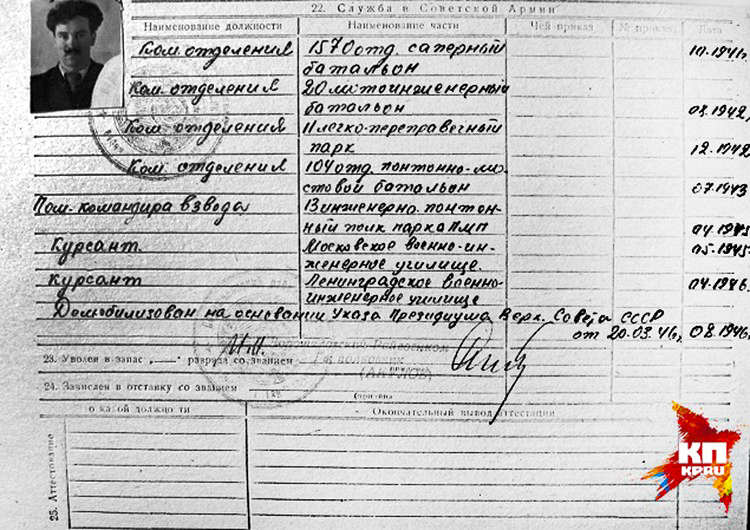 22. Служба в Советской Армии
Наименование должности Наименование части Чей приказ № приказа Дата
Ком. отделения 1570 отд. саперный 10.1941г.
батальон
Ком. отделения 20 мотоинженерный
батальон 08.1942,
Ком. отделения 11 легко-переправочный
парк 12.1942
Ком. отделения 104 отд. понтонно-мо-
стовой батальон 07.1943
Пом. командира взвода 13 инженерно-понтон-
ный полк парка НМП 04.1945
Курсант. Московское военно-ин- 05.1945
женерное училище.
курсант Ленинградское военно- 04.1946
инженерное училище
Демобилизован на основании Указа Президиума Верх. Совета СССР
от 20.03.46г, 08.1946,
23. Уволен в запас „ “ разряда со званием
24. Зачислен в отставку со званием
о какой должности Окончательный вывод аттестации
25. Аттестование
КП
KP.RU